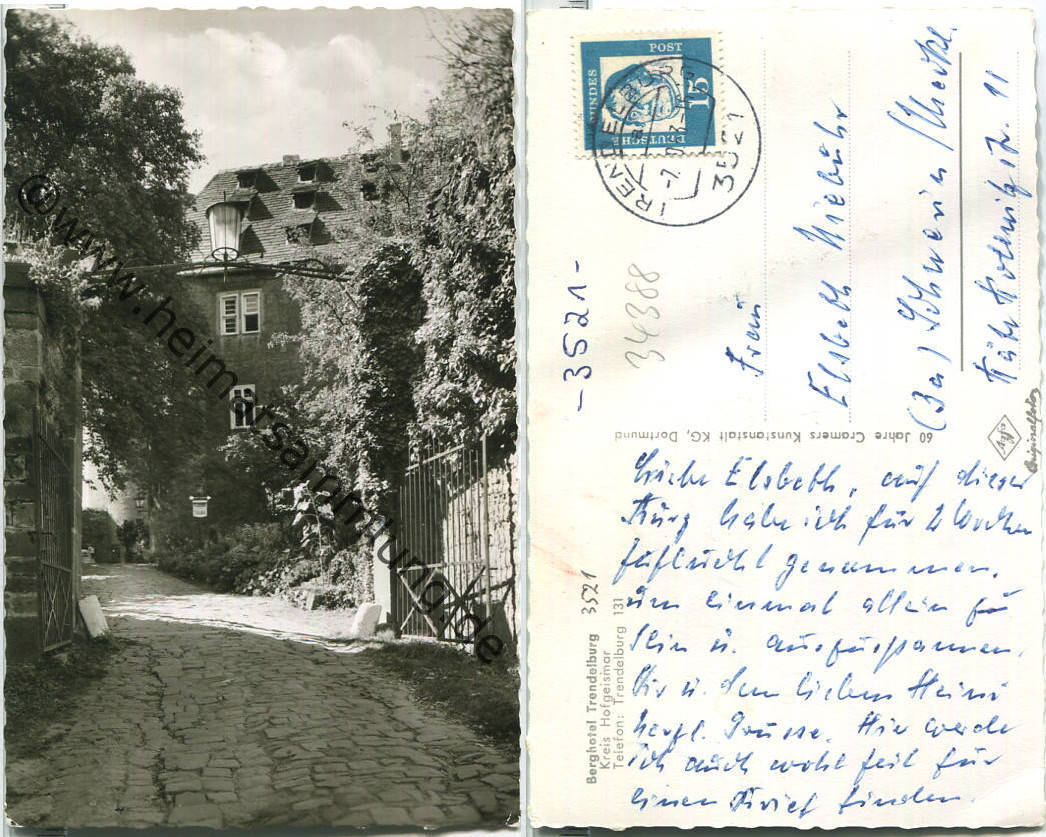 © www.heimatsammlung.de
DEUTSCHE BUNDESPOST
15
TRENDELBURG
3521
- 3521 -
34388
Frau
Elsbeth Niebuhr
(3a) Schwerin / Meckl.
Käte Kollwitzstr. 11
60 Jahre Cramers Kunstanstalt KG, Dortmund
Agfa
Originalfoto
Berghotel Trendelburg 3521
Kreis Hofgeismar
Telefon: Trendelburg 131
Liebe Elsbeth, auf dieser
Burg habe ich für 2 Wochen
Zuflucht genommen,
um einmal allein zu
sein u. auszuspannen.
Dir u. dem lieben Heini
herzl. Grüsse. Hier werde
ich auch wohl Zeit für
einen Brief finden.